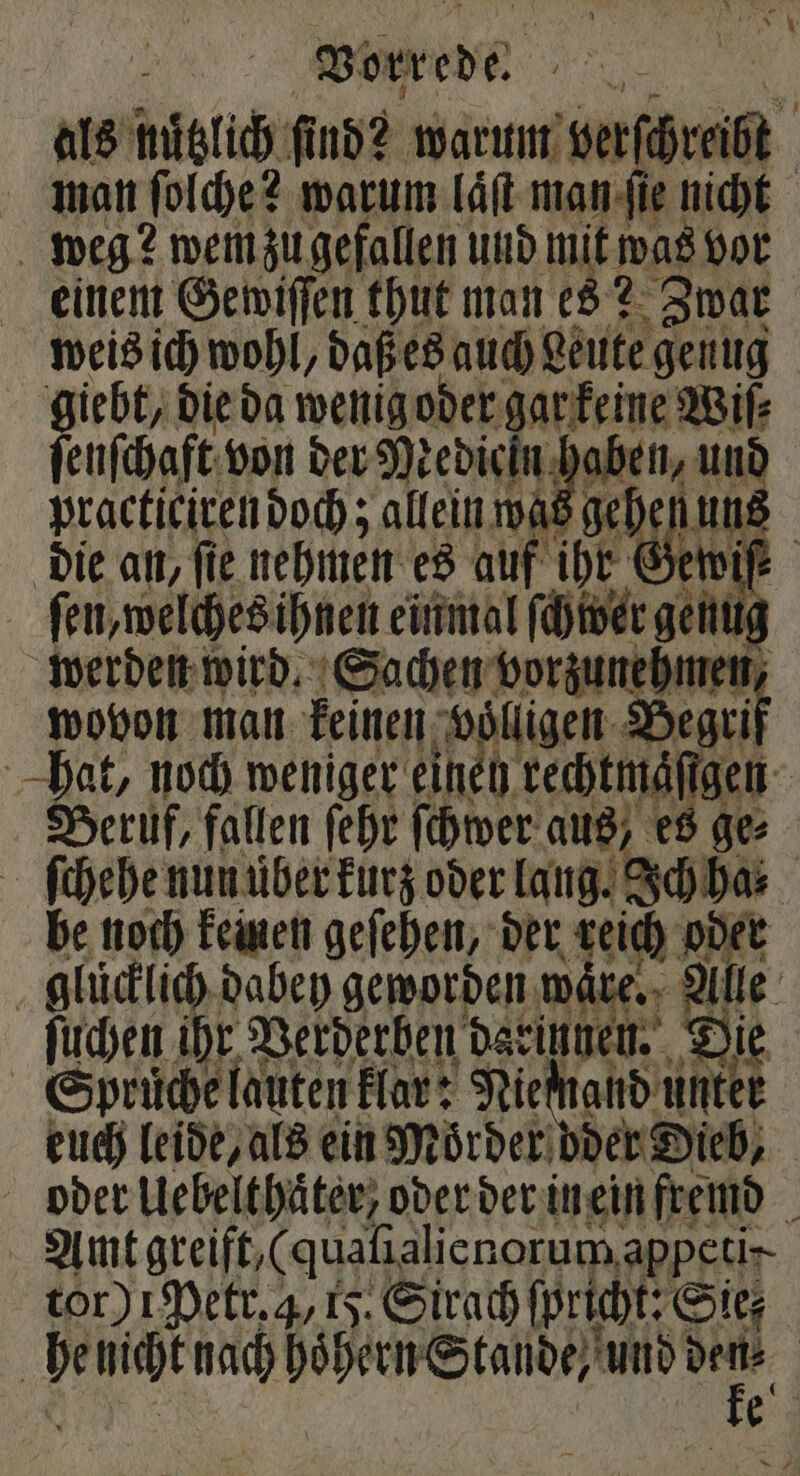 Vorrede.
als nuͤtzlich ſind? warum verſchreibt
man ſolche? warum laͤſt man ſie nicht
weg? wem zu gefallen und mit was vor
einem Gewiſſen thut man es? Zwar
weis ich wohl, daß es auch Leute genug
giebt, die da wenig oder gar keine Wiſ⸗
ſenſchaft von der Medicin haben, und
practiciren doch; allein was gehen uns
die an, ſie nehmen es auf ihr Gewiſ⸗
ſen, welches ihnen einmal ſchwer genug
werden wird. Sachen vorzunehmen,
wovon man keinen voͤlligen Begrif
hat, noch weniger einen rechtmaͤſigen
Beruf, fallen ſehr ſchwer aus, es ge⸗
ſchehe nun uͤber kurz oder lang. Ich ha⸗
be noch keinen geſehen, der reich oder
gluͤcklich dabey geworden waͤre. Alle
ſuchen ihr Verderben darinnen. Die
Spruͤche lauten klar: Niemand unter
euch leide, als ein Moͤrder oder Dieb,
oder Uebelthaͤter, oder der in ein fremd
Amt greift, (quaſi alienorum appeti-
tor) 1 Petr. 4, 15. Sirach ſpricht: Sie⸗
he nicht nach hoͤhern Stande, und den⸗
ke